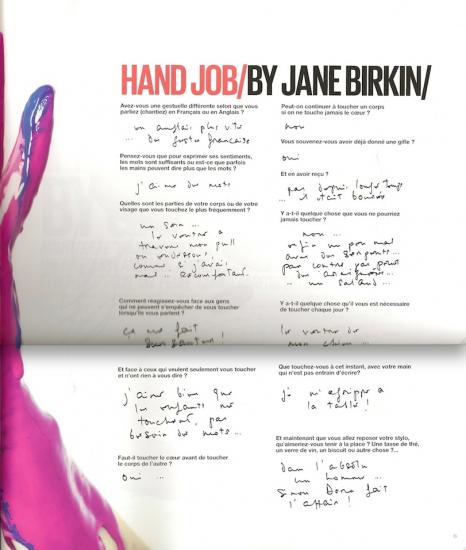 HAND JOB/BY JANE BIRKIN/
Avez-vous une gestuelle différente selon que vous
parliez (chantiez) en Français ou en Anglais ?
en anglais plus vite
... du geste française
Pensez-vous que pour exprimer ses sentiments,
les mots sont suffisants ou est-ce que parfois
les mains peuvent dire plus que les mots ?
j'aime des mots
Quelles sont les parties de votre corps ou de votre
visage que vous touchez le plus fréquemment ?
un sein ...
le ventre a
travers mon pull
ou
comme si j'avais
mal .. reconfortant.
Comment réagissez-vous face aux gens
qui ne peuvent s'empêcher de vous toucher
lorsqu'ils vous parlent ?
ça me fait
Et face à ceux qui veulent seulement vous toucher
et n'ont rien à vous dire ?
j'aime bien que
les enfants me
touchent, pas
besoin des mots ...
Faut-il toucher le cœur avant de toucher
le corps de l'autre ?
Oui ...
Peut-on continuer à toucher un corps
si on ne touche jamais le cœur ?
non
Vous souvenez-vous avoir déjà donné une gifle ?
oui
Et en avoir reçu ?
pas depuis longtemps
... il était bourré
Y a-t-il quelque chose que vous ne pourriez
jamais toucher ?
non ...
enfin un peu mal
avec des serpents ...
par contre pas peur
des araignées ...
... un salaud ...
Y a-t-il quelque chose qu'il vous est nécessaire
de toucher chaque jour ?
le ventre de
mon chien ...
Que touchez-vous à cet instant, avec votre main
qui n'est pas entrain d'écrire?
je m'agrippe a
la table !
Et maintenant que vous allez reposer votre stylo,
qu'aimeriez-vous tenir à la place ? Une tasse de thé,
un verre de vin, un biscuit ou autre chose ?...
dans l'absolu
un homme ...
sinon Dora fait
l'affaire !